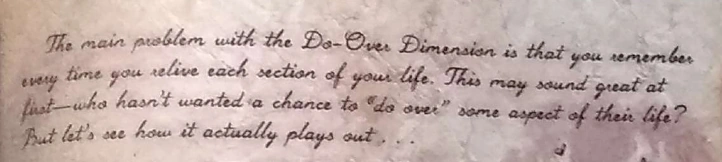 The main problem with the Do-Over Dimension is that you remember
every time you relive each section of your life. This may sound great at
first—who hasn't wanted a chance to "do over" some aspect of their life?
But let's see how it actually plays out . . .